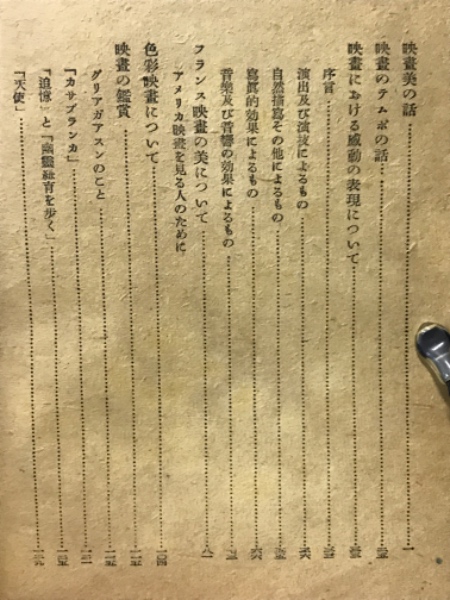 映畫美の話
映畫のテムポの話
映畫における感動の表現について
序言
演出及び演技によるもの
自然描寫その他によるもの
寫眞的効果によるもの
音樂及び音響の効果によるもの
フランス映畫の美について
アメリカ映畫を見る人のために
色彩映畫について
映畫の鑑賞
グリアガアスンのこと
「カサブランカ」
「追憶」と「幽靈紐育を歩く」
「天使」